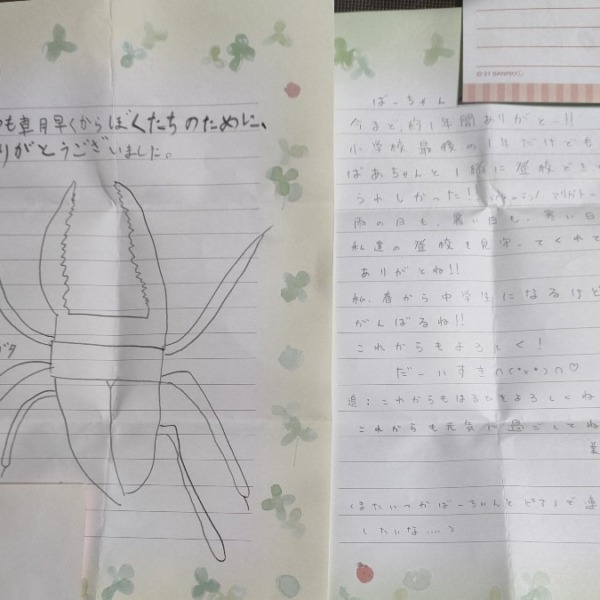 も草月早くからぼくたちのために、
りがとうございました。
バタ
© '21 SANRIO
ばーちゃん
今まで、約1年間ありがとー!!
小学校最後の1年だけども
ばあちゃんと1緒に登校でき
うれしかった!
雨の日も、暑い日も、寒い日
私達の登校を見守ってくれて
ありがとね!!
私、春から中学生になるけど
がんばるね!!
これからもよろしく!
だーいすき∩(*v*)∩♡
追:これからもはるひをよろしくね
これからも元気に過ごしてね
(またいつかばーちゃんとピアノで連
したいな...)